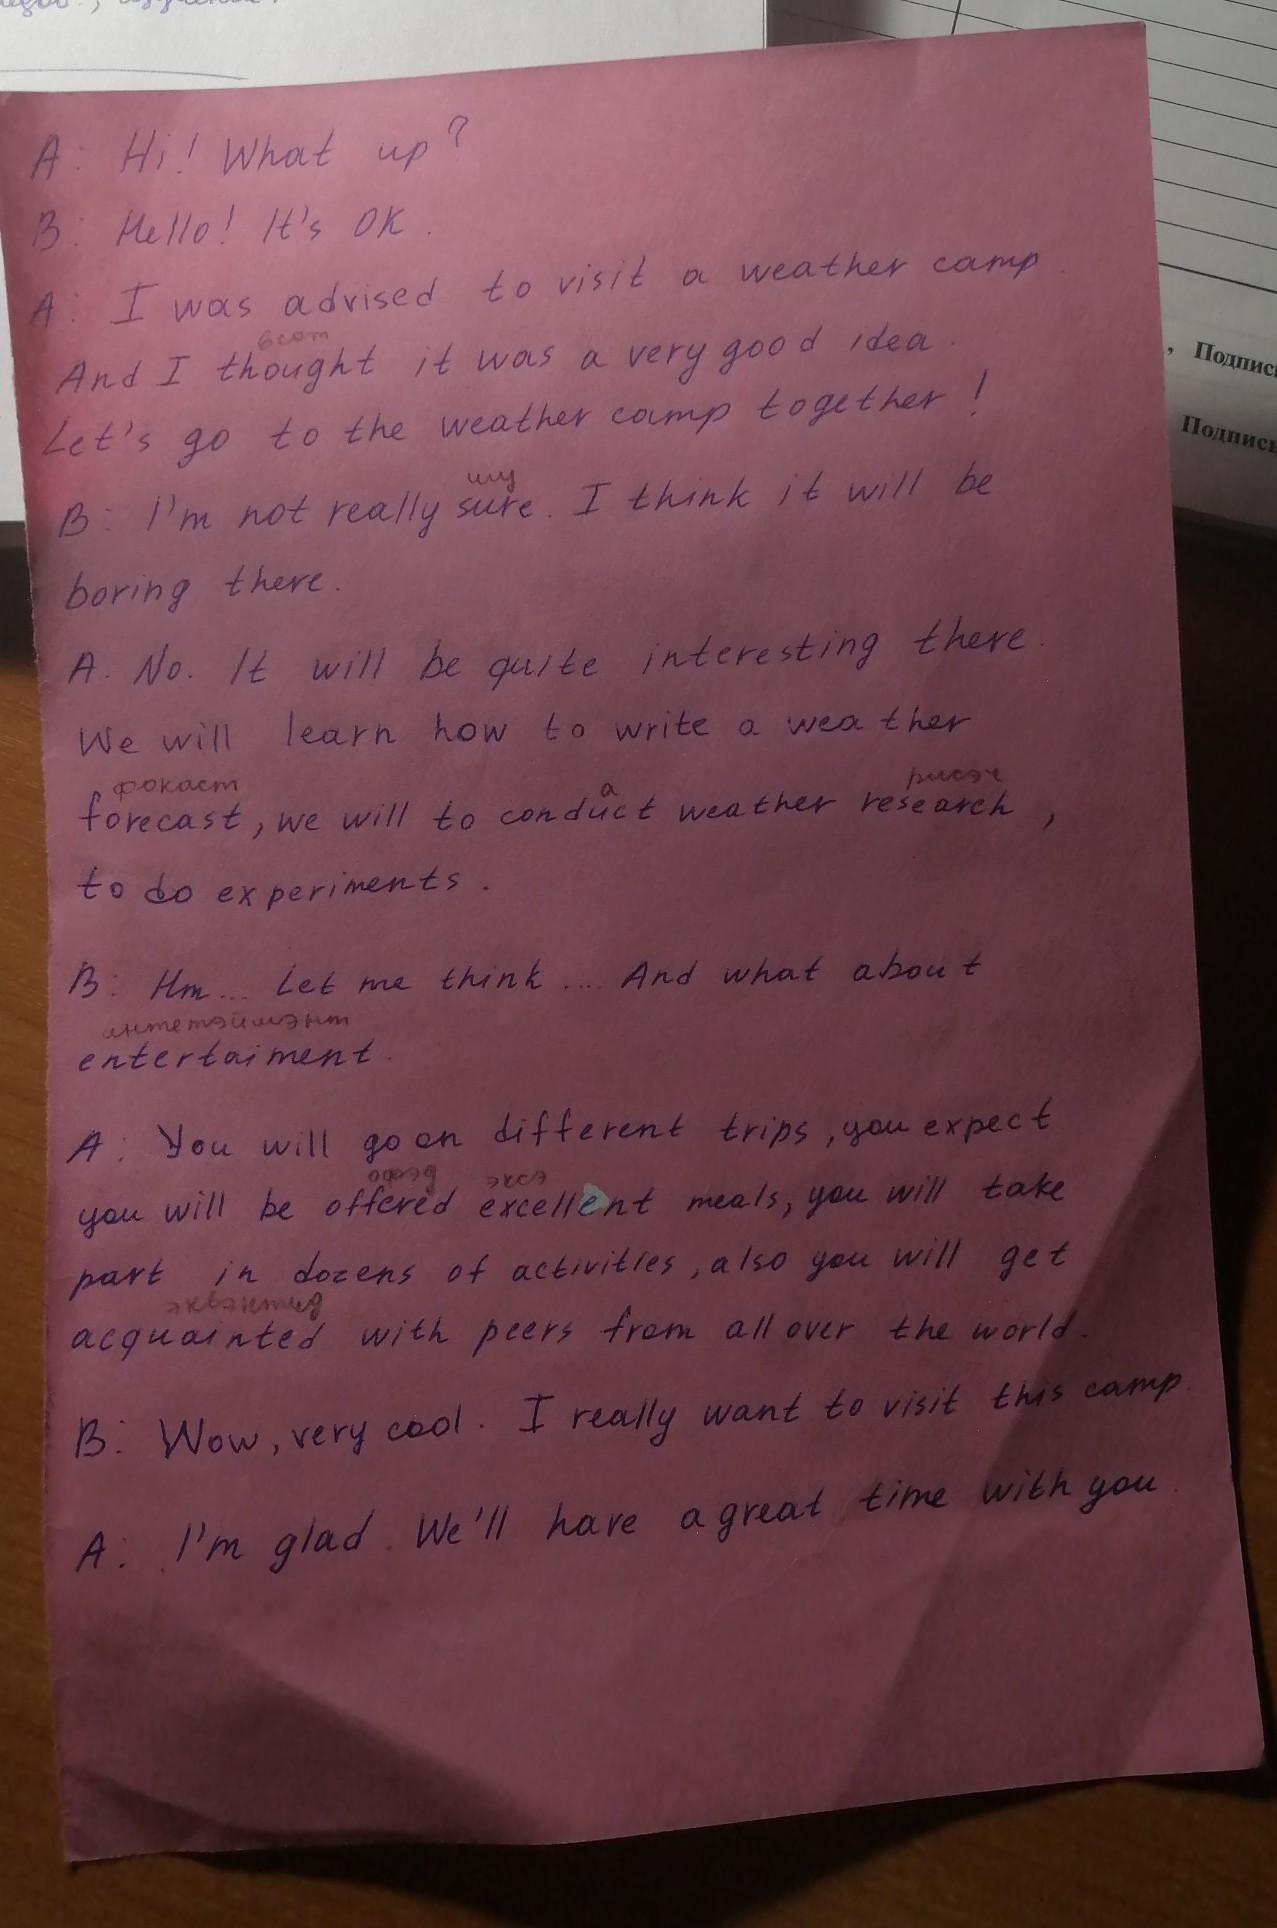 A: Hi! What up?
B: Hello! It's OK.
A: I was advised to visit a weather camp.
And I thought it was a very good idea.
Let's go to the weather camp together!
шу
B: I'm not really sure. I think it will be
boring there.
A. No. It will be quite interesting there.
We will learn how to write a weather
фокаст а рисэч
forecast, we will to conduct weather research,
to do experiments.
B: Hm... Let me think.... And what about
интетэймэнт
entertaiment.
A: You will go on different trips, you expect
офэд эксэ
you will be offered excellent meals, you will take
part in dozens of activities, also you will get
эквэнтид
acquainted with peers from all over the world.
B: Wow, very cool. I really want to visit this camp.
A: I'm glad. We'll have a great time with you.
, Подпись
Подпись